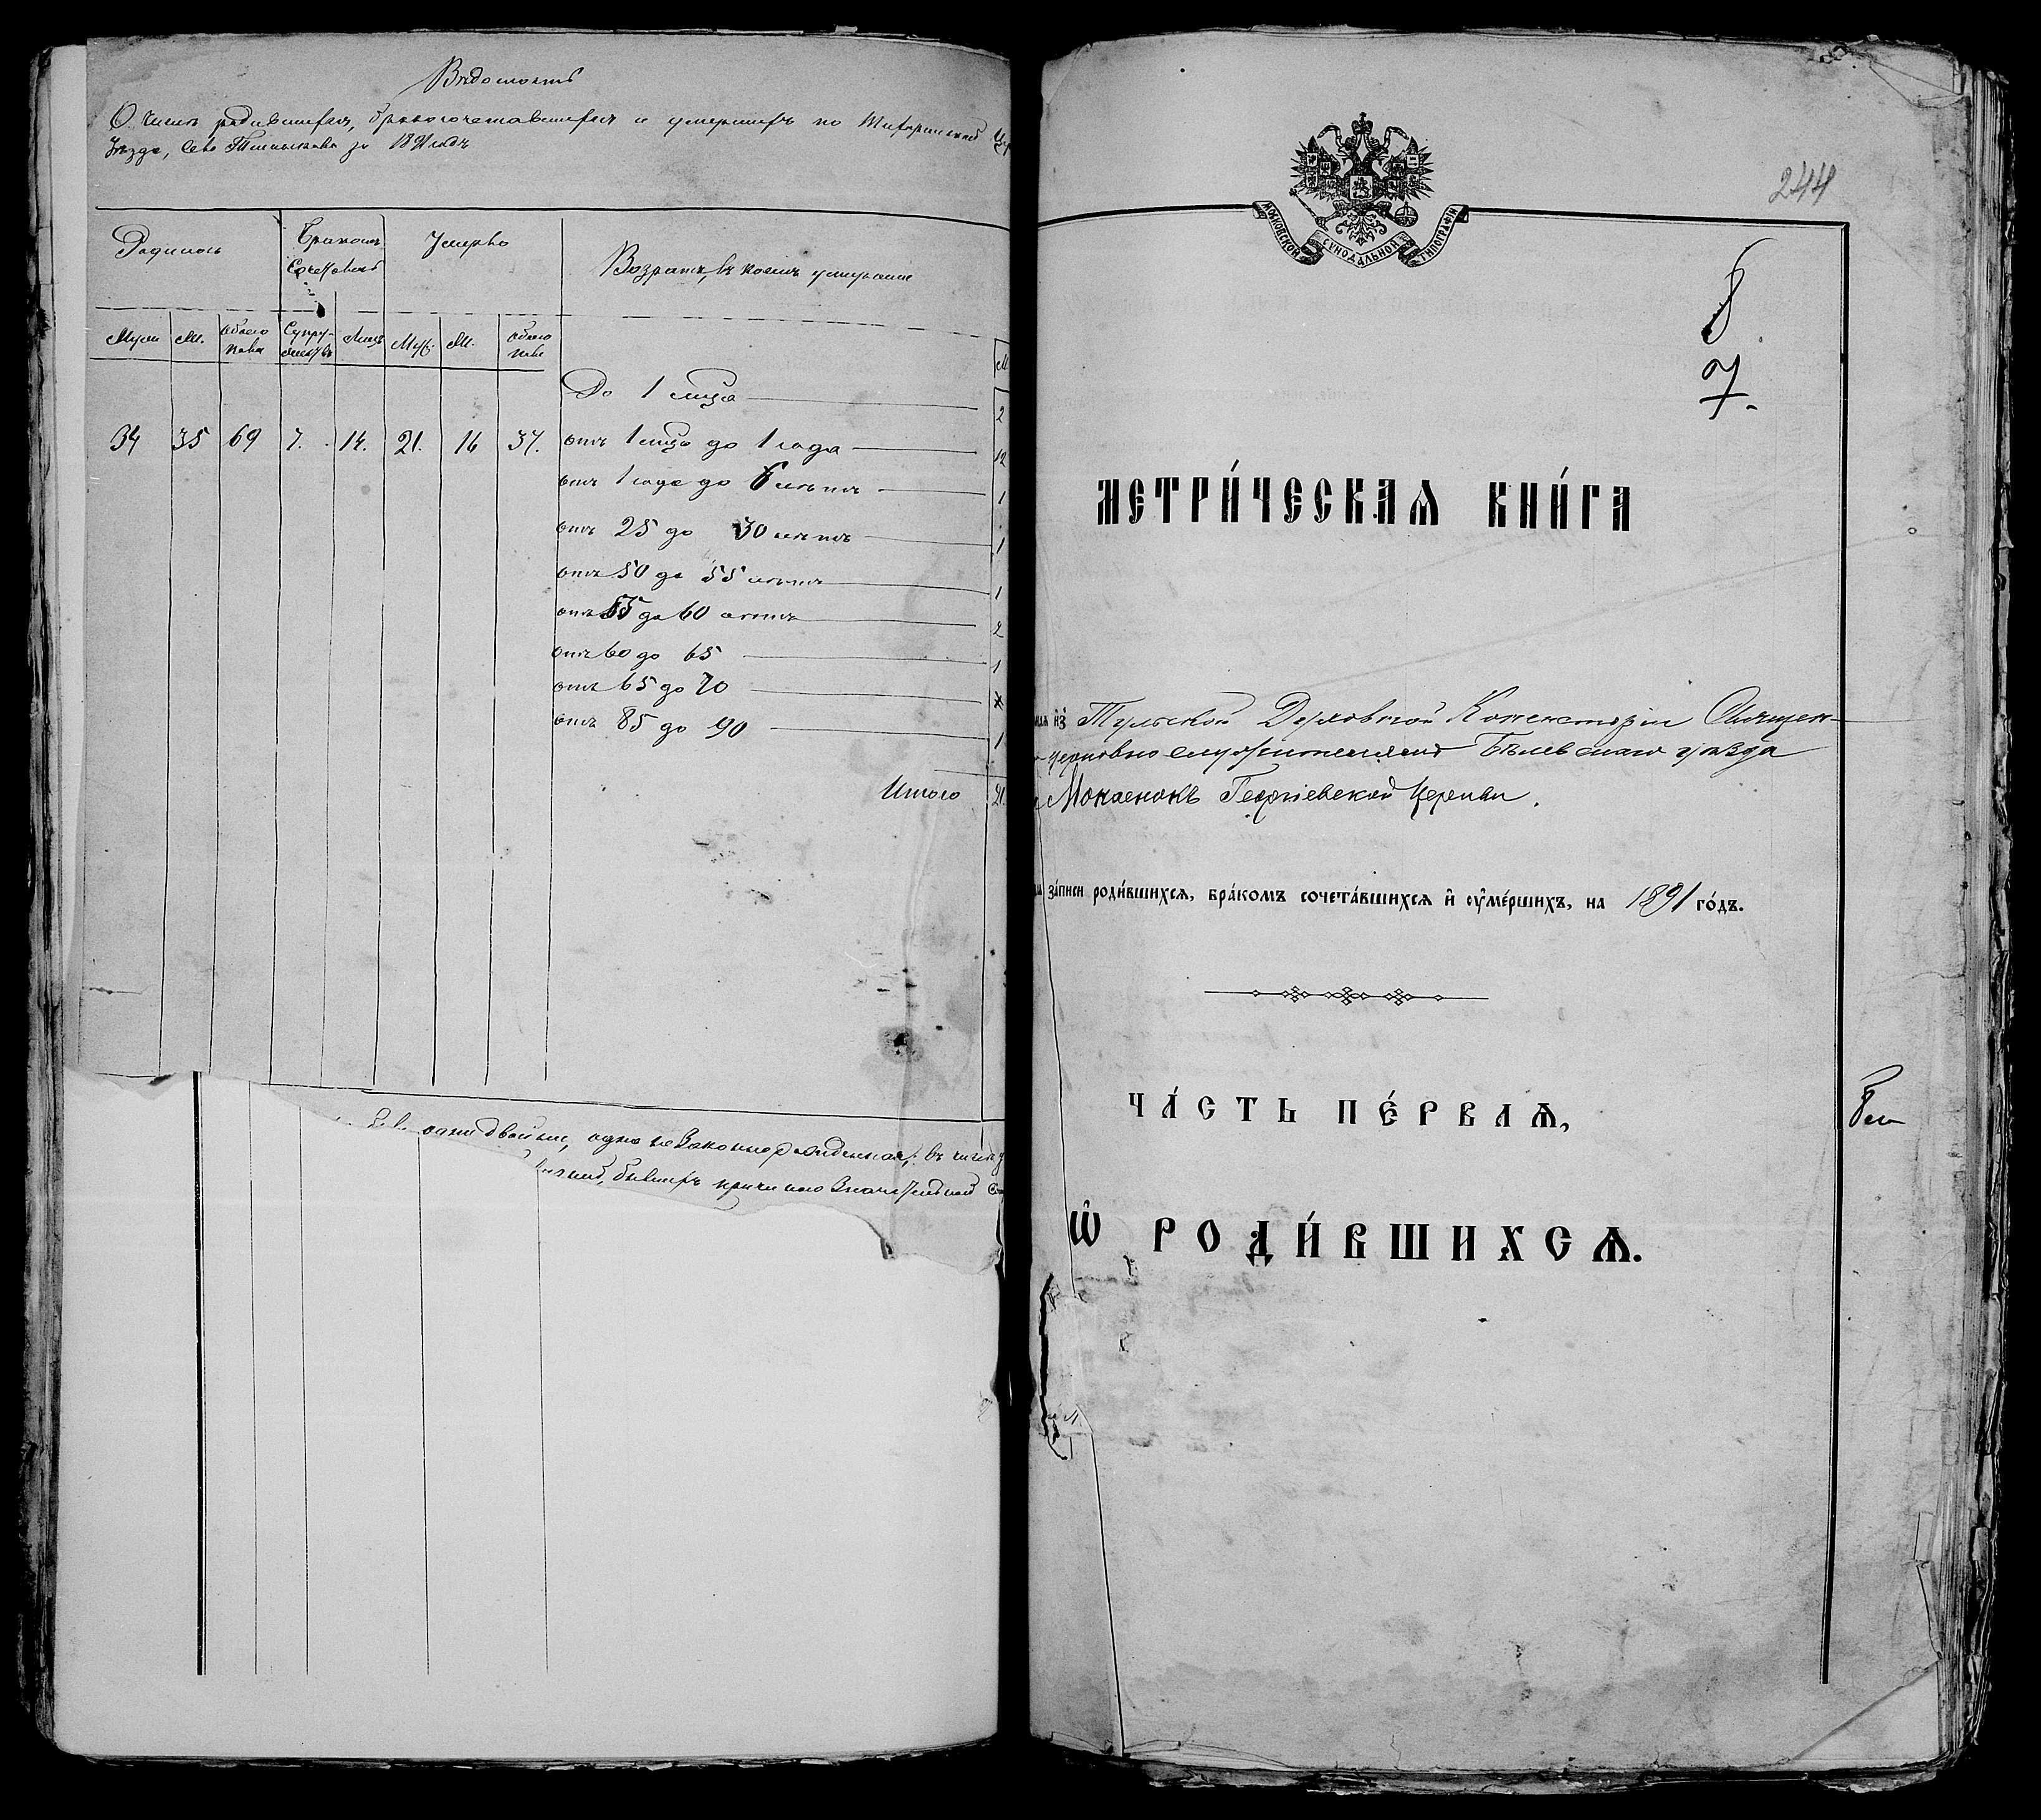 Вѣдомость
О числѣ родившихся, бракосочетавшихся и умершихъ по
Уѣзда, села за 1891 годъ
Родилось
Бракомъ
Сочеталось
Умерло
Возрастъ, въ коемъ умершие
Муж. Ж. Обоего пола Супружествъ Лицъ Муж. Ж. Обоего пола
М
34 35 69 7. 14. 21. 16 37.
До 1 мѣсяца 2
отъ 1 мѣс до 1 года 12
отъ 1 года до 5 лѣтъ 1
отъ 25 до 30 лѣтъ 1
отъ 50 до 55 лѣтъ 1
отъ 55 до 60 лѣтъ 2
отъ 60 до 65 1
отъ 65 до 70
отъ 85 до 90 1
Итого 21.
одни двойни, одна незаконнорожденная, въ числѣ
бывшихъ причиною значительной
244
МОСКОВСКОЙ СѴНОДАЛЬНОЙ ТИПОГРАФІИ
8
7.
МЕТРИ́ЧЕСКАѦ КНИ́ГА
из̾ Тульской Духовной Консисторіи Священ-
церковно служителямъ Бѣлевскаго уѣзда
Монаенокъ Георгіевской Церкви.
за́писи роди́вшихсѧ, бра́комъ сочета́вшихсѧ и҆ ᲂу҆ме́ршихъ, на 1891 го́дъ.
ЧА́СТЬ ПЕ́РВАѦ,
Ѡ҆ РОДИ́ВШИХСѦ.